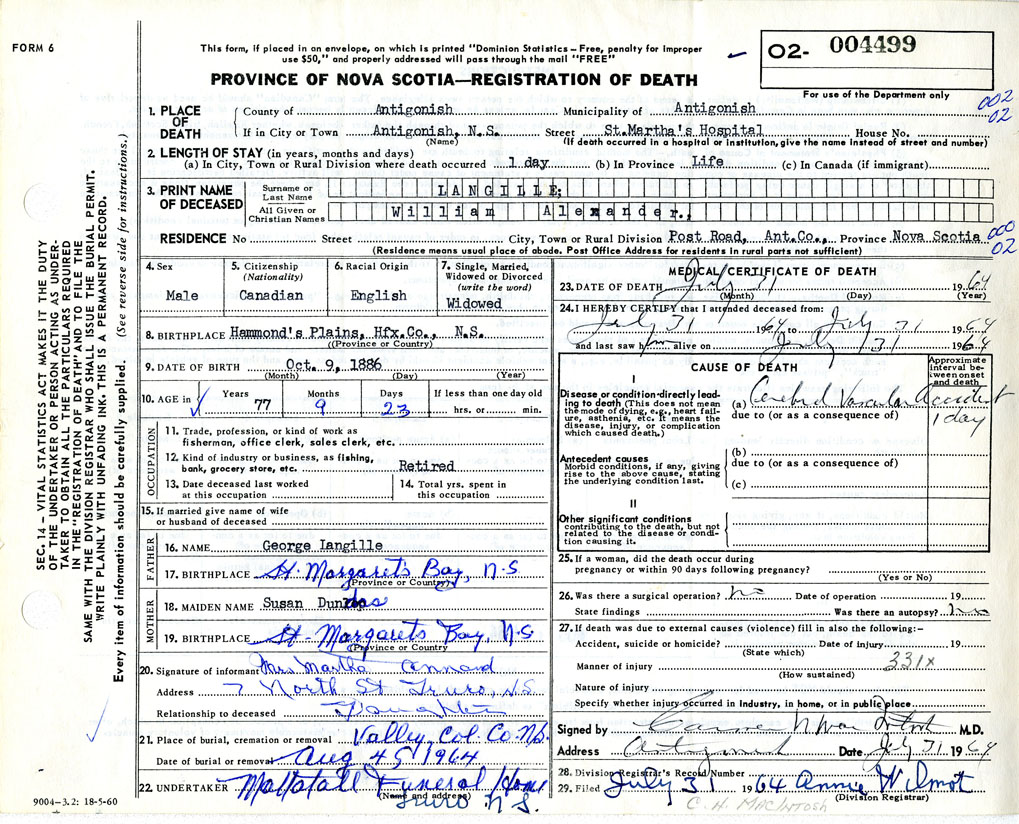 FORM 6
This form, if placed in an envelope, on which is printed "Dominion Statistics – Free, penalty for improper
use $50," and properly addressed will pass through the mail "FREE"
PROVINCE OF NOVA SCOTIA—REGISTRATION OF DEATH
02- 004499
For use of the Department only
002
02
SEC. 14 – VITAL STATISTICS ACT MAKES IT THE DUTY
OF THE UNDERTAKER OR PERSON ACTING AS UNDER-
TAKER TO OBTAIN ALL THE PARTICULARS REQUIRED
IN THE "REGISTRATION OF DEATH" AND TO FILE THE
SAME WITH THE DIVISION REGISTRAR WHO SHALL ISSUE THE BURIAL PERMIT.
WRITE PLAINLY WITH UNFADING INK. THIS IS A PERMANENT RECORD.
Every item of information should be carefully supplied. (See reverse side for instructions.)
1. PLACE OF DEATH
County of Antigonish Municipality of Antigonish
If in City or Town Antigonish, N.S. Street St.Martha's Hospital House No.
(Name) (If death occurred in a hospital or institution, give the name instead of street and number)
2. LENGTH OF STAY (in years, months and days)
(a) In City, Town or Rural Division where death occurred 1 day (b) In Province Life (c) In Canada (if immigrant)
3. PRINT NAME OF DECEASED
Surname or Last Name LANGILLE:
All Given or Christian Names William Alexander.,
RESIDENCE No Street City, Town or Rural Division Post Road, Ant.Co., Province Nova Scotia
000
02
(Residence means usual place of abode. Post Office Address for residents in rural parts not sufficient)
4. Sex Male
5. Citizenship (Nationality) Canadian
6. Racial Origin English
7. Single, Married, Widowed or Divorced (write the word) Widowed
8. BIRTHPLACE Hammond's Plains, Hfx.Co., N.S.
((Province or Country)
9. DATE OF BIRTH Oct. 9, 1886
(Month) (Day) (Year)
10. AGE in Years 77 Months 9 Days 23 If less than one day old hrs. or min.
OCCUPATION
11. Trade, profession, or kind of work as
fisherman, office clerk, sales clerk, etc.
12. Kind of industry or business, as fishing,
bank, grocery store, etc. Retired
13. Date deceased last worked at this occupation
14. Total yrs. spent in this occupation
15. If married give name of wife
or husband of deceased
FATHER
16. NAME George Iangille
17. BIRTHPLACE St. Margarets Bay, N.S
(Province or Country)
MOTHER
18. MAIDEN NAME Susan Dun
19. BIRTHPLACE St. Margarets Bay, N.S
(Province or Country
20. Signature of informant Mrs Martha Annand
Address 7 North St Truro, N.S.
Relationship to deceased Daughter
21. Place of burial, cremation or removal Valley, Col. Co. N.S.
Date of burial or removal Aug 4 1964
22. UNDERTAKER Mattatall Funeral Home
(Name and address)
Truro N.S.
MEDICAL CERTIFICATE OF DEATH
23. DATE OF DEATH July 31 1964
(Month) (Day) (Year)
24. I HEREBY CERTIFY that I attended deceased from:
July 31 1964 to July 31 1964
and last saw him alive on July 31 1964
CAUSE OF DEATH
Approximate interval between onset and death
I
Disease or condition directly lead-
ing to death (This does not mean
the mode of dying, e.g., heart fail-
ure, asthenia, etc. It means the
disease, injury, or complication
which caused death.)
(a) Cerebral Vascular Accident
due to (or as a consequence of)
1 day
Antecedent causes
Morbid conditions, if any, giving
rise to the above cause, stating
the underlying condition last.
(b)
due to (or as a consequence of)
(c)
II
Other significant conditions
contributing to the death, but not
related to the disease or condi-
tion causing it.
25. If a woman, did the death occur during
pregnancy or within 90 days following pregnancy?
(Yes or No)
26. Was there a surgical operation? no Date of operation 19
State findings Was there an autopsy? no
27. If death was due to external causes (violence) fill in also the following:-
Accident, suicide or homicide? Date of injury 19
(State which)
Manner of injury 331x
(How sustained)
Nature of injury
Specify whether injury occurred in industry, in home, or in public place
Signed by M.D.
Address Antigonish Date July 31 1964
28. Division Registrar's Record Number
29. Filed July 31 1964 Annie Wilmot
(Division Registrar)
C. H. MACINTOSH
9004-3.2: 18-5-60